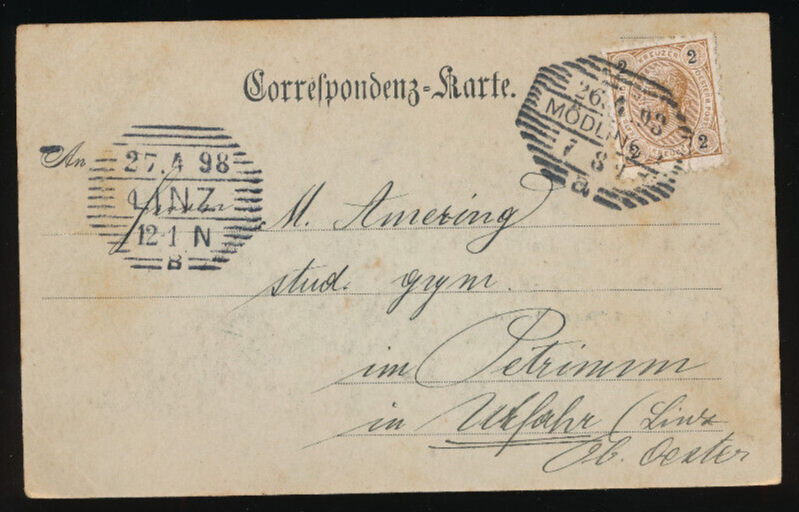 Correspondenz-Karte.
2 KREUZER 2
2 2
26. 4. 98
MÖDLING
7 8
a
An
27.4 98
LINZ
12-1 N
B
M. Amering
stud. gym.
im Petrinum
in Urfahr (Linz
Ob. Oester